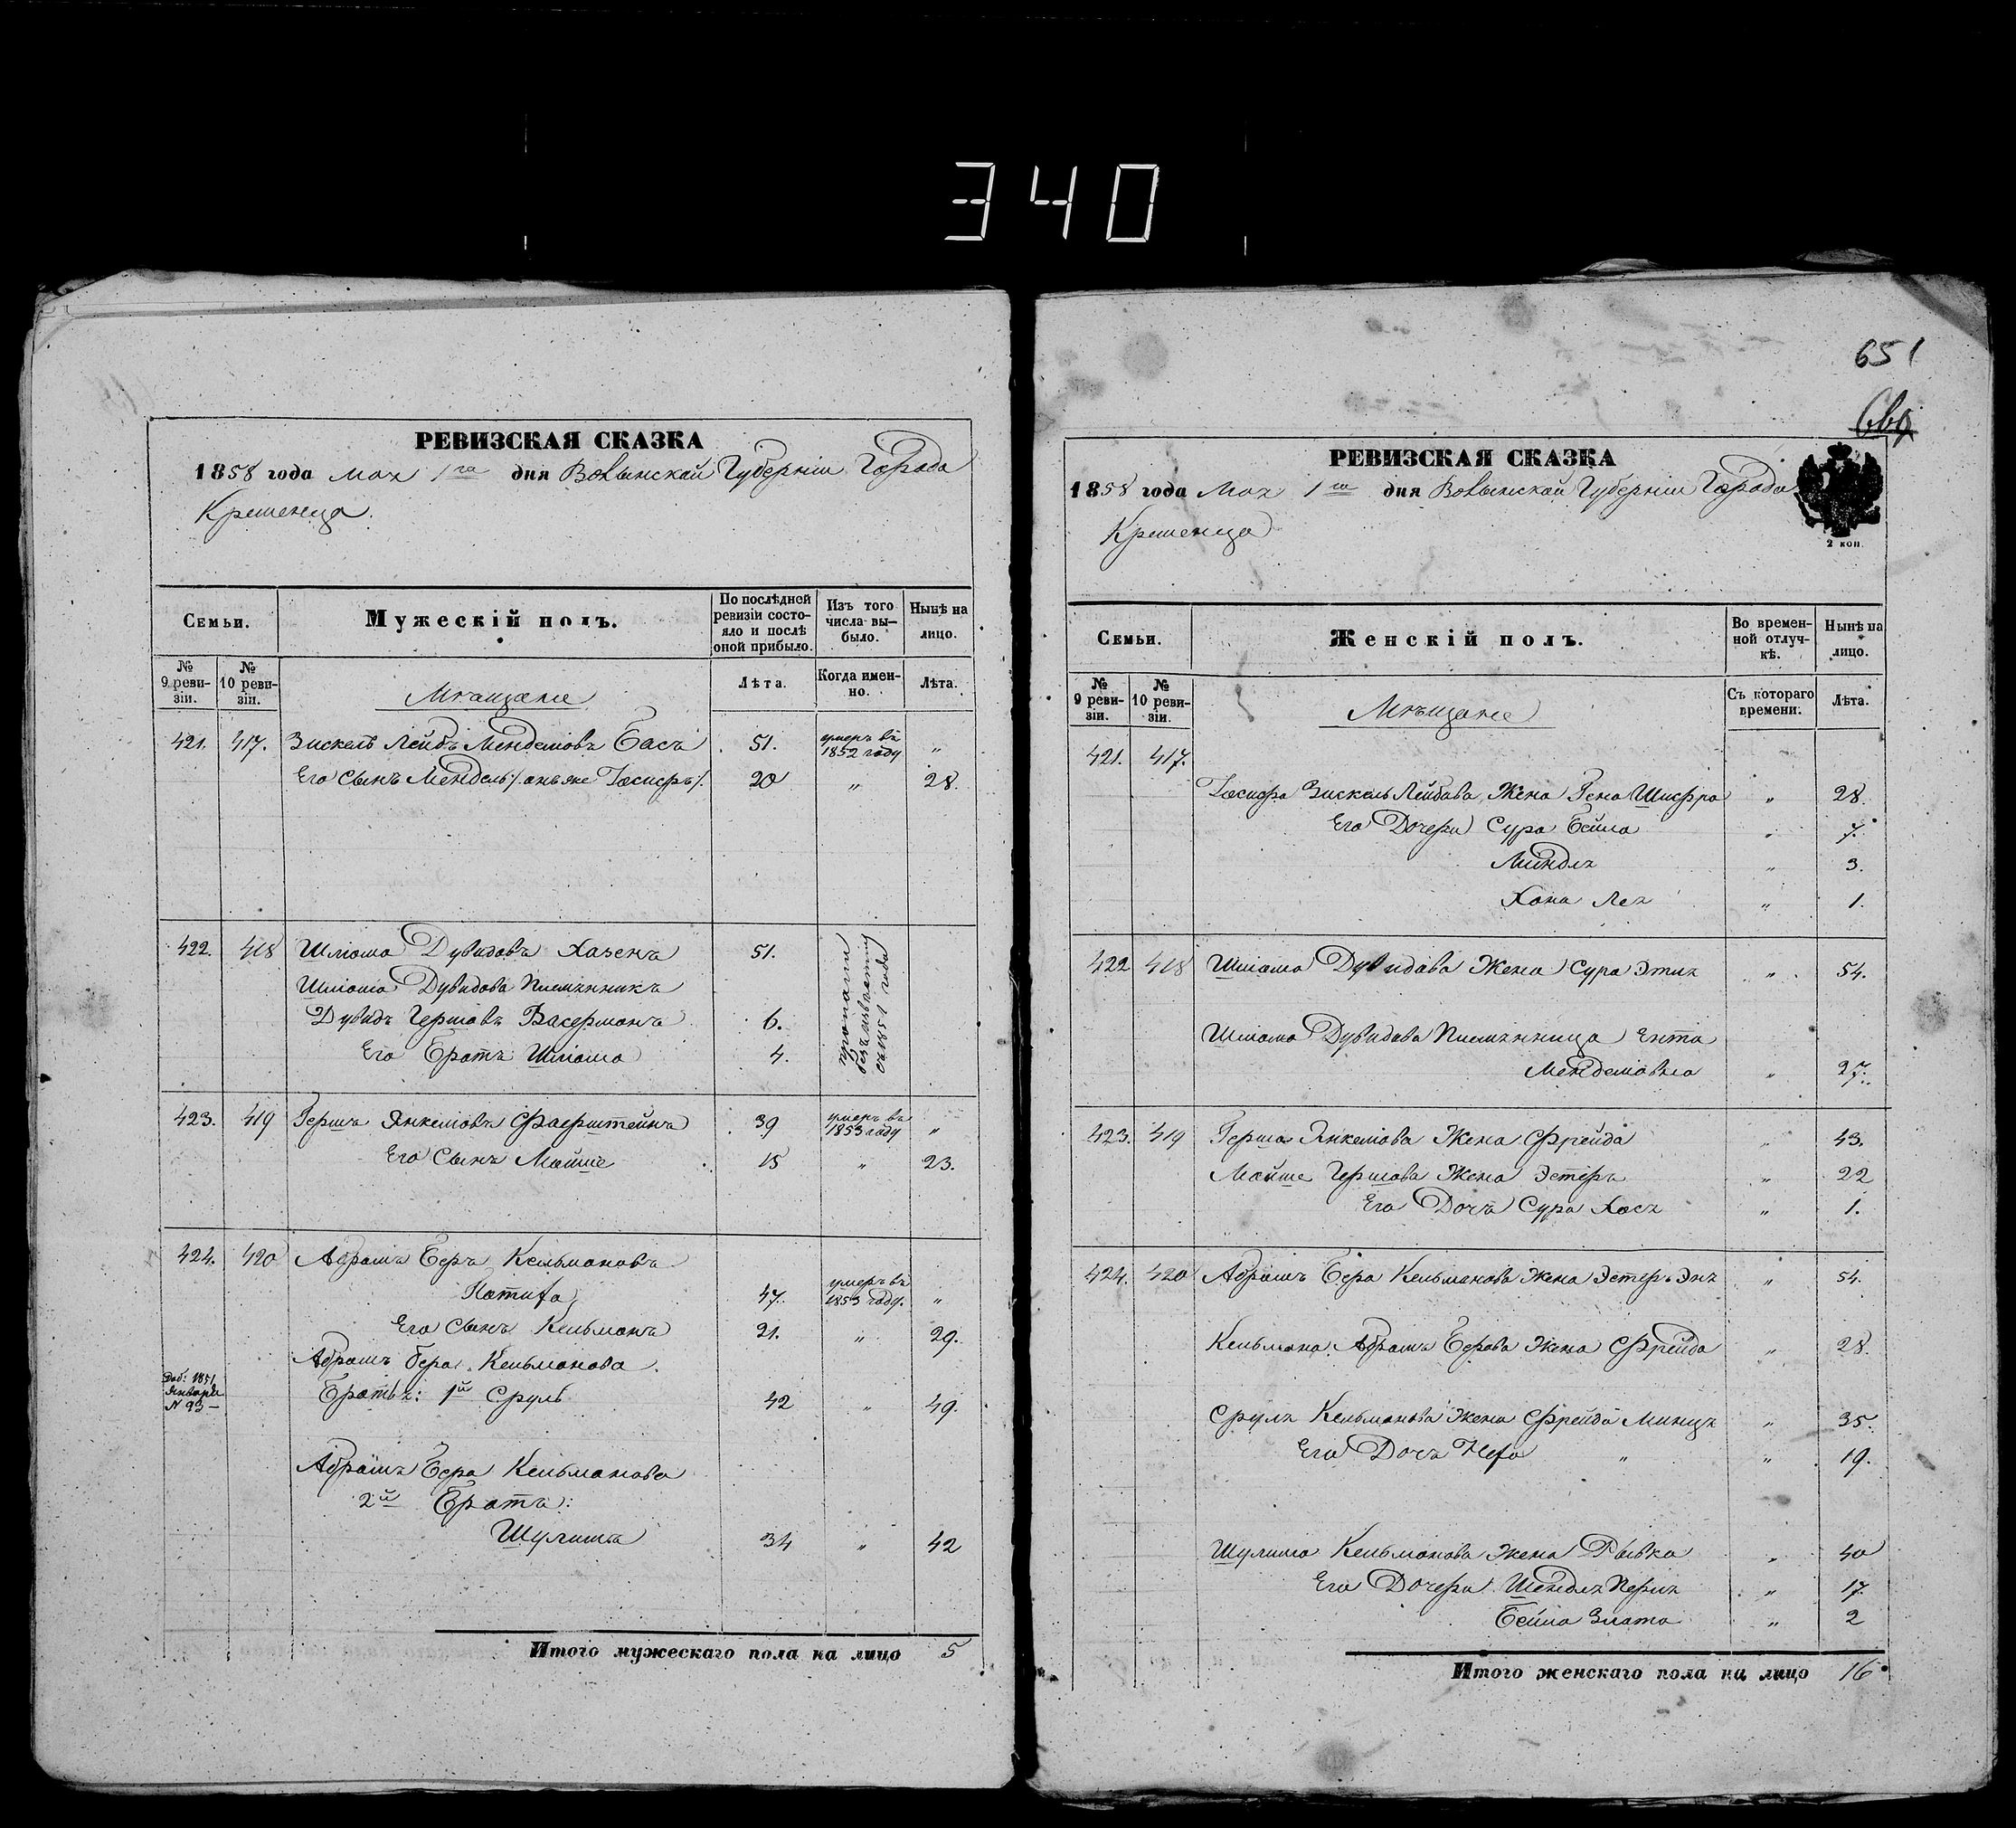 340
РЕВИЗСКАЯ СКАЗКА
1858 года мая 1го дня Волынской Губерніи Города
Кременца.
Семьи.
Мужескій полъ.
По послѣдней ревизіи состояло и послѣ оной прибыло.
Изъ того числа выбыло.
Нынѣ на лицо.
№ 9 ревизіи.
№ 10 ревизіи.
Мѣщане
Лѣта.
Когда именно.
Лѣта.
421. 417. Зискель Лейбъ Менделювъ Басъ 51. умеръ въ 1852 году „
Его Сынъ Мендель /: онъ же Іосифъ :/ 20 „ 28.
422. 418 Шлiома Дувидовъ Хазенъ 51.
Шлiома Дувидова Племянникъ
Дувидъ Гершовъ Васерманъ 6.
Его Братъ Шлiома 4.
съ 1851 года
423. 419 Гершъ Янкелiовъ Фаерштейнъ 39 умеръ въ 1853 году „
Его Сынъ Мойше 15 „ 23.
424. 420 Абрамъ Беръ Кельмановъ
47. умеръ въ 1853 году. „
Его Сынъ Кельманъ 21. „ 29.
Абрамъ Бера Кельманова
Доб: 1851 Января N 93 –
Братья: 1й Сруль 42 „ 49.
Абрамъ Бера Кельманова
2й Братъ:
Шулимъ 34 „ 42
Итого мужескаго пола на лицо 5
651
РЕВИЗСКАЯ СКАЗКА
1858 года Мая 1го дня Волынской Губерніи Города
Кременца
2 коп.
Семьи.
Женскій полъ.
Во временной отлучкѣ.
Нынѣ на лицо.
№ 9 ревизіи.
№ 10 ревизіи.
Мѣщане
Съ котораго времени.
Лѣта.
421. 417.
Іосифа Зискель Лейбова Жена Гена Шифра „ 28.
Его Дочери Сура Бейла „ 7.
Миндля „ 3.
Хана Лея „ 1.
422 418 Шлiома Дувидова Жена Сура Этля „ 54.
Шлiома Дувидова Племянница Ента
Менделiовна „ 27.
423. 419 Герша Янкелiова Жена Фрейда „ 43.
Мойше Гершова Жена Эстеръ „ 22
Его Дочь Сура Хася „ 1.
424. 420 Абрамъ Бера Кельманова Жена Эстеръ Эня „ 54.
Кельмана Абрамъ Берова Жена Фрейда „ 28.
Сруля Кельманова Жена Фрейда Минця „ 35.
Его Дочь „ 19.
Шулима Кельманова Жена Рывка „ 40
Его Дочери Шендля Перля „ 17.
Бейла Злата „ 2
Итого женскаго пола на лицо 16